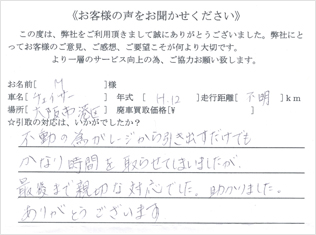 《お客様の声をお聞かせください》
この度は、弊社をご利用頂きまして誠にありがとうございました。弊社にと
ってお客様のご意見、ご感想、ご要望こそが何より大切です。
より一層のサービス向上の為、ご協力お願い致します。
お名前[ M ]様
車名[ チェイサー ] 年式[ H.12 ]走行距離[ 不明 ]km
場所[ 大阪市港区 ] 廃車買取価格[¥ ]
☆引取の対応は、いかがでしたか?
不動の為ガレージから引き出すだけでも
かなり時間を取らせてしまいましたが、
最後まで親切な対応でした。助かりました。
ありがとうございます